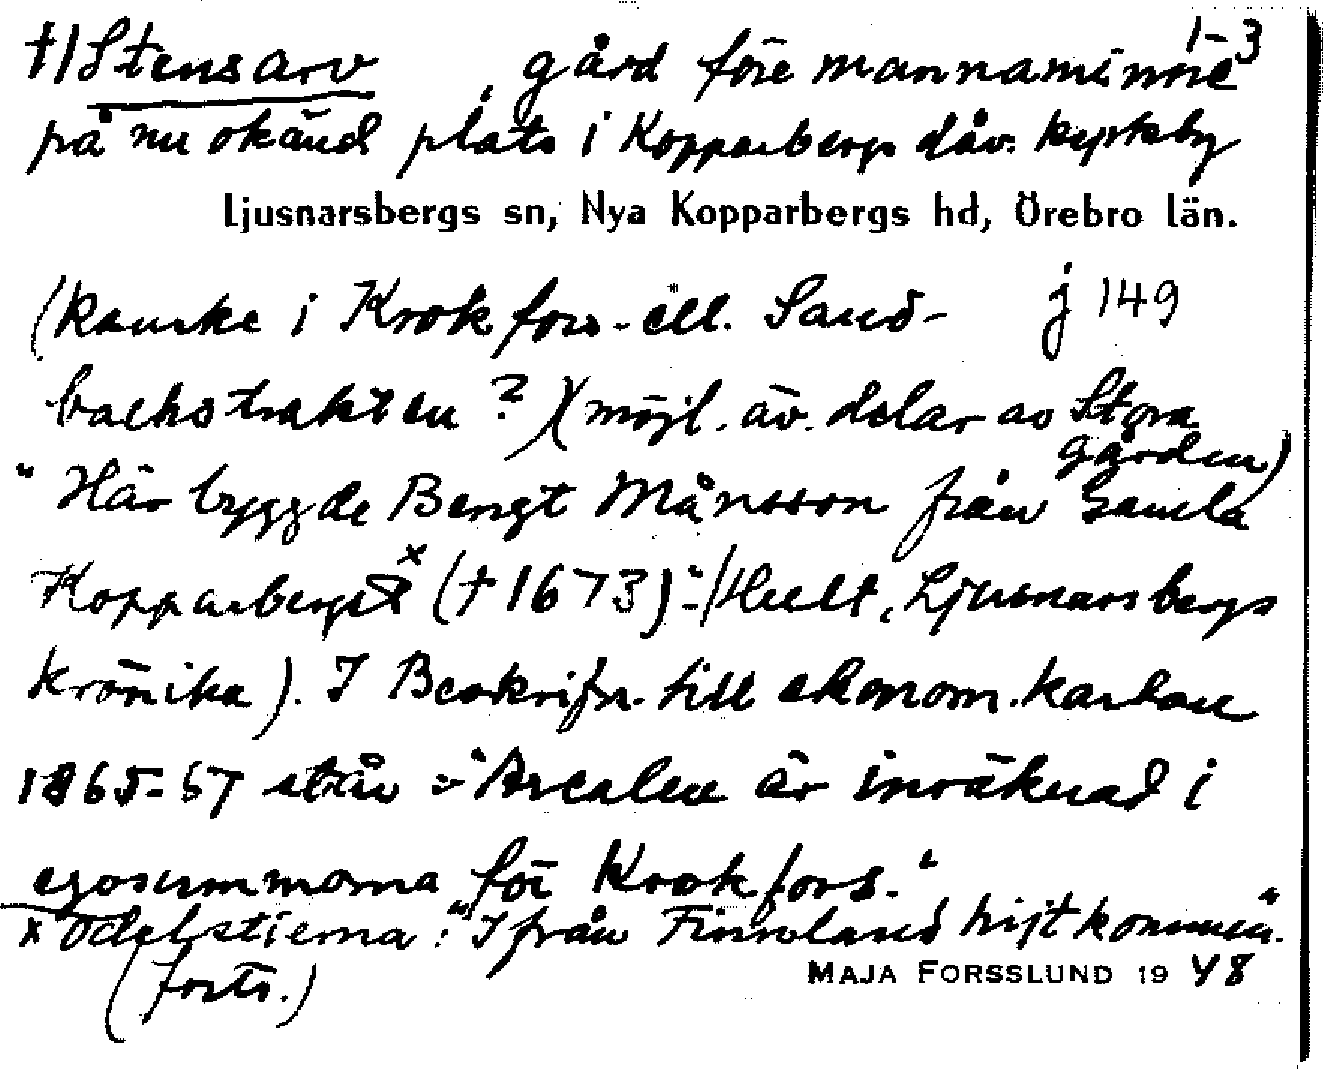 †/Stensarv, gård före mannaminne 1-3
på nu okänd plats i Kopparbergs dåv. kyrkby
Ljusnarsbergs sn, Nya Kopparbergs hd, Örebro län.
(kanske i Krokfors- ell. Sand- j 149
backstrakten?) (möjl. äv. delar av Stora
gården)
"Här byggde Bengt Månsson från Gamla
Kopparberget x († 1673)" (Hult, Ljusnarsbergs
krönika). I Beskrifn. till ekonom. kartan
1865-67 står: "Arealen är inräknad i
egosummorna för Krokfors."
x Odelstierna: "Ifrån Finnland hijt kommen".
(forts.)
MAJA FORSSLUND 19 48